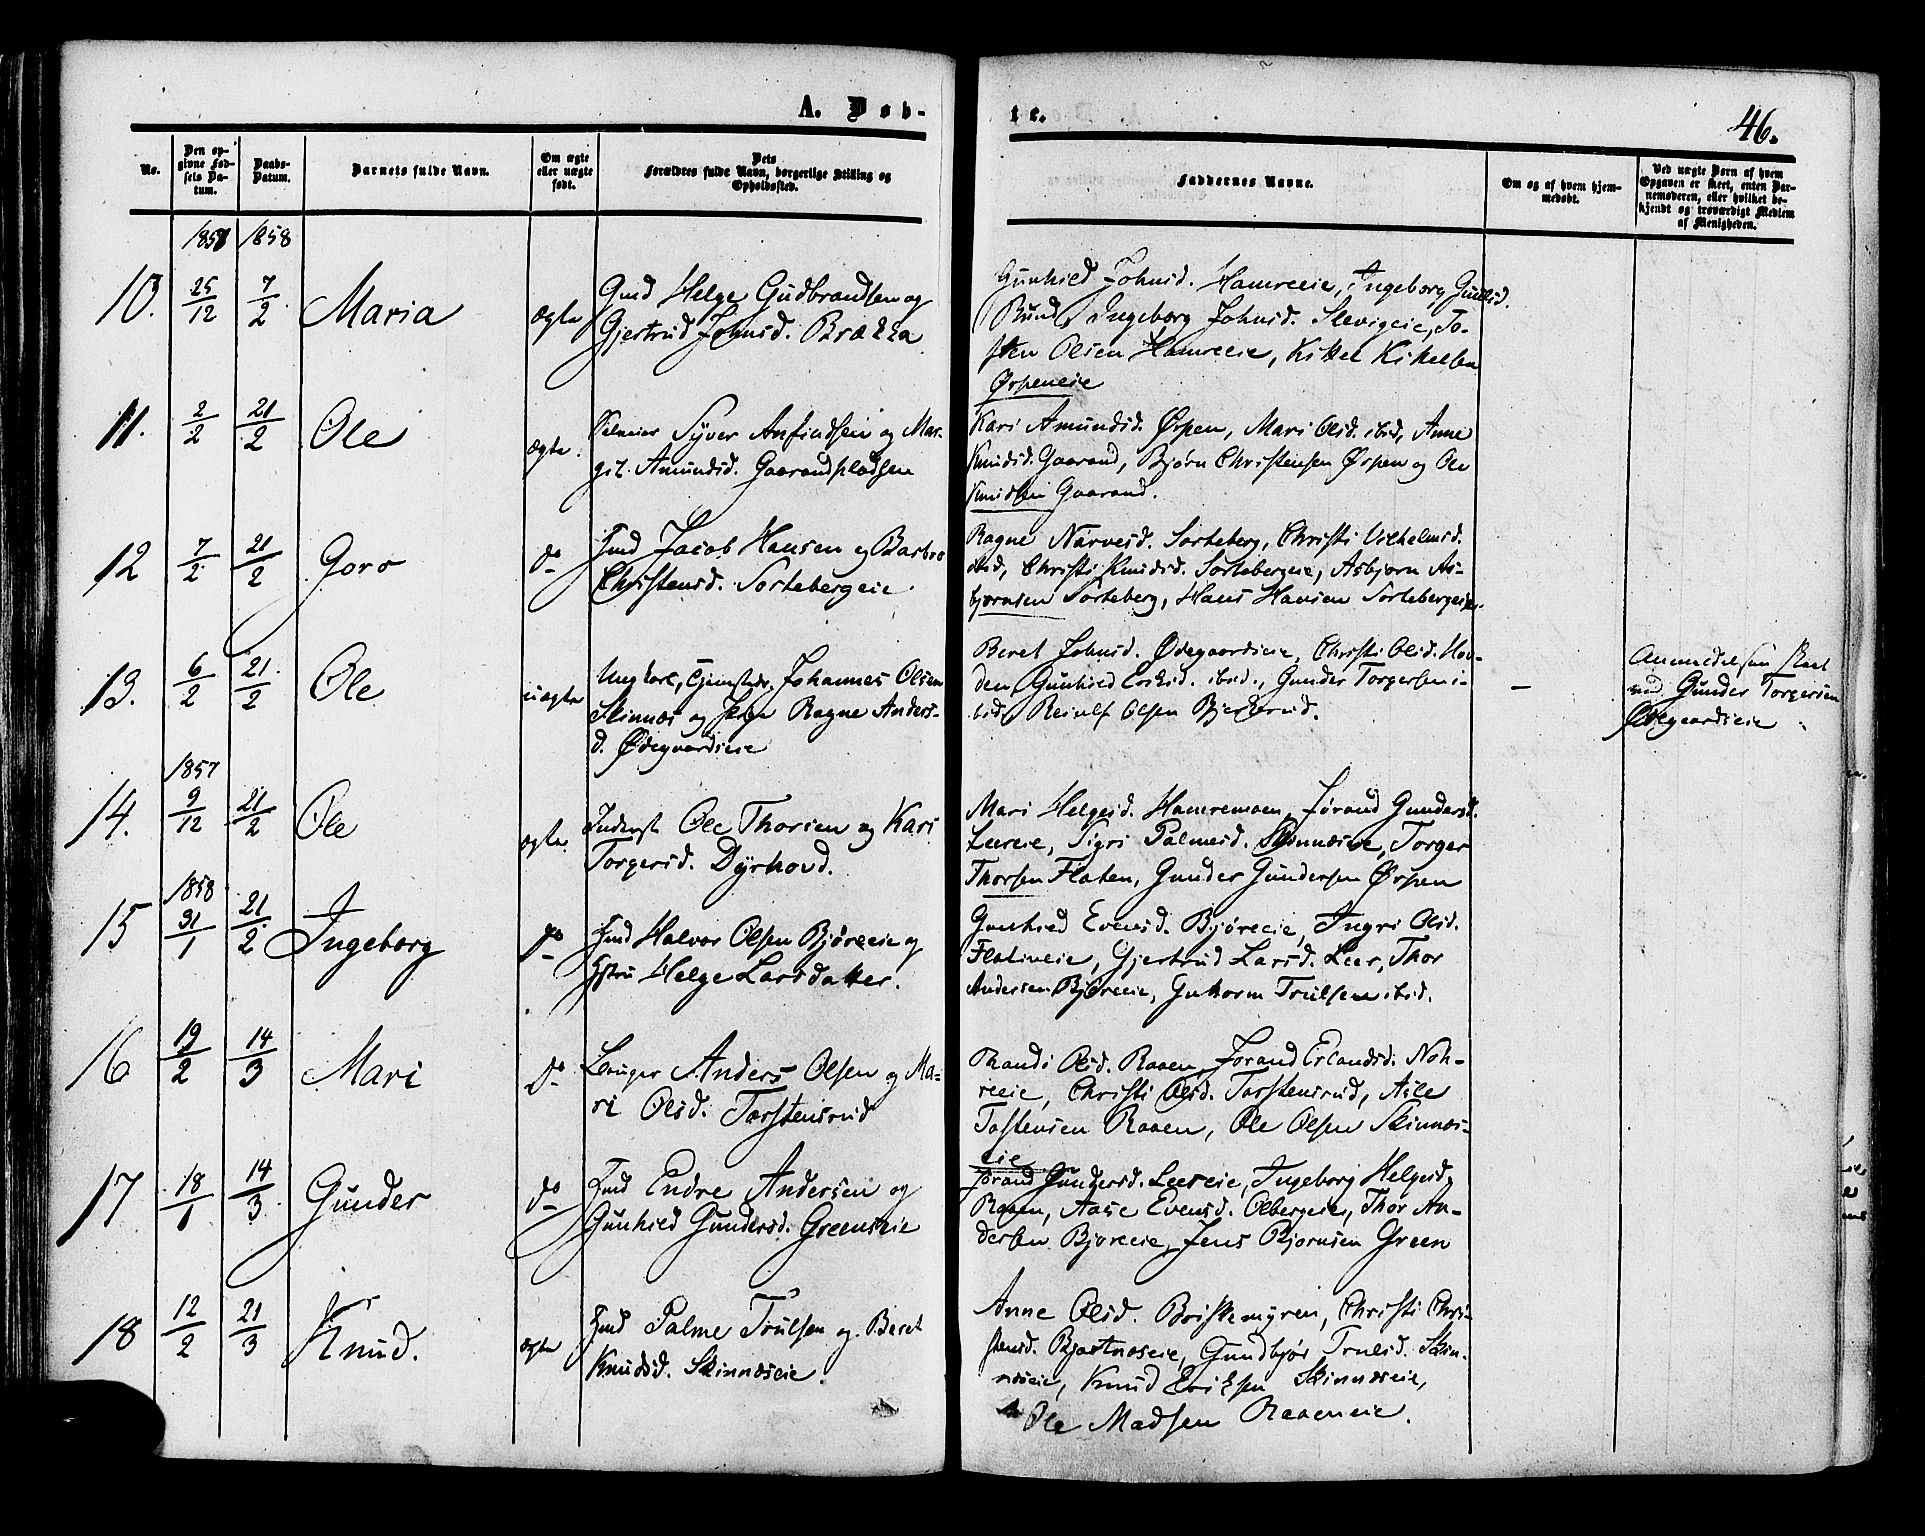 A. Døb-
te.
46.
No.
Den op-
givne Fød-
sels Da-
tum.
Daabs-
Datum.
Barnets fulde Navn.
Om ægte
eller uægte
født.
Dets
Forældres fulde Navn, borgerlige Stilling og
Opholdssted.
Faddernes Navne.
Om og af hvem hjem-
medøbt.
Ved uægte Børn af hvem
Opgaven er skeet, enten Bar-
nemoderen, eller hvilket be-
kjendt og troværdigt Medlem
af Menigheden.
1857 1858
10. 25/12 7/2 Maria ægte
Gmd Helge Gudbrandsen og
Gjertrud Johnsd. Brækka
Gunhild Johnsd. Hamreeie, Ingeborg Gulliksd.
Rund, Ingeborg Johnsd. Slevigeie, To-
sten Olsen Hamreeie, Kittel Kittelsen
Ørpeneie
11. 2/2 21/2 Ole ægte.
Selveier Syver Anfindsen og Mar-
git Amundsd. Gaarandpladsen
Kari Amundsd. Ørpen, Mari Olsd. ibid, Anne
Knudsd. Gaarand, Bjørn Christensen Ørpen og Ole
Knudsen Gaarand.
12 7/2 21/2 Goro do
Hmd Jacob Hansen og Barbro
Christensd. Sortebergeie.
Ragne Narvesd. Sorteberg, Christi Vilhelmsd.
ibid, Christi Knudsd. Sortebergeie, Asbjørn As-
bjørnsen Sorteberg, Hans Hansen Sortebergeie.
13. 6/2 21/2 Ole uægte
Ungkarl, Johannes Olsen
Skinnes og Pige Ragne Anders-
d. Ødegaardseie
Beret Johnsd. Ødegaardseie, Christi Olsd. Hov-
den, Gunhild Eriksd. ibid., Gunder Torgersen i-
bid, Reiulf Olsen Bjerkerud.
–
Anmeldelsen skeet
ved Gunder Torgersen
Ødegaardseie
1857
14. 9/12 21/2 Ole ægte
Inderst Ole Thorsen og Kari
Torgersd. Dyrhovd.
Mari Helgesd. Hamremoen, Jørand Gundersd.
Leereie, Sigri Palmesd. Skinneseie, Torger
Thorsen Flaten, Gunder Gundersen Ørpen
1858
15 31/1 21/2 Ingeborg do
Hmd Halvor Olsen Bjøreeie og
Hstru Helge Larsdatter.
Gunhild Evensd. Bjøreeie, Ingri Olsd.
Flatineie, Gjertrud Larsd. Leer, Thor
Andersen Bjøreeie, Guttorm Trulsen ibid.
16 19/2 14/3 Mari do
Bruger Anders Olsen og Ma-
ri Olsd. Torstensrud
Randi Olsd. Raaen, Jørand Erlandsd. Nor-
reeie, Christi Olsd. Torstensrud, Asle
Tostensen Raaen, Ole Olsen Skinnes-
eie
17 18/1 14/3 Gunder do
Hmd Endre Andersen og
Gunhild Gundersd. Greenseie
Jørand Gundersd. Leereie, Ingeborg Helgesd.
Raaen, Aase Evensd. Olbergeie, Thor An-
dersen Bjøreeie, Jens Bjørnsen Green
18 12/2 21/3 Knud. ægte
Hmd Palme Trulsen og Beret
Knudsd. Skinneseie.
Anne Olsd. Briskemyren, Christi Chri-
stensd. Bjertneseie, Gundbjør Trulsd. Skin-
neseie, Knud Eriksen Skinneseie,
Ole Madsen Raaeneie.